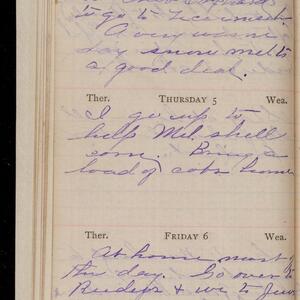 to go to
A very warm
day snow melts
a good deal.
Ther. THURSDAY 5 Wea.
I go up to
help Mel. shell
corn. Bring a
load of cobs home
Ther. FRIDAY 6 Wea.
At home most of
the day. Go over to
& we to